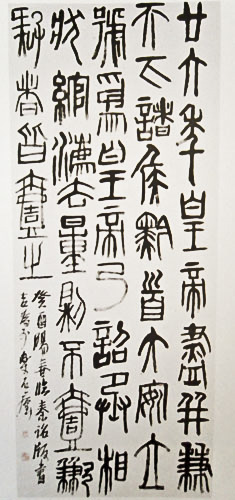 廿六年皇帝盡并兼
天下諸侯黔首大安立
號為皇帝乃詔丞相
狀綰灋度量則不壹歉
疑者皆壹之
癸酉陽春臨秦詔版書